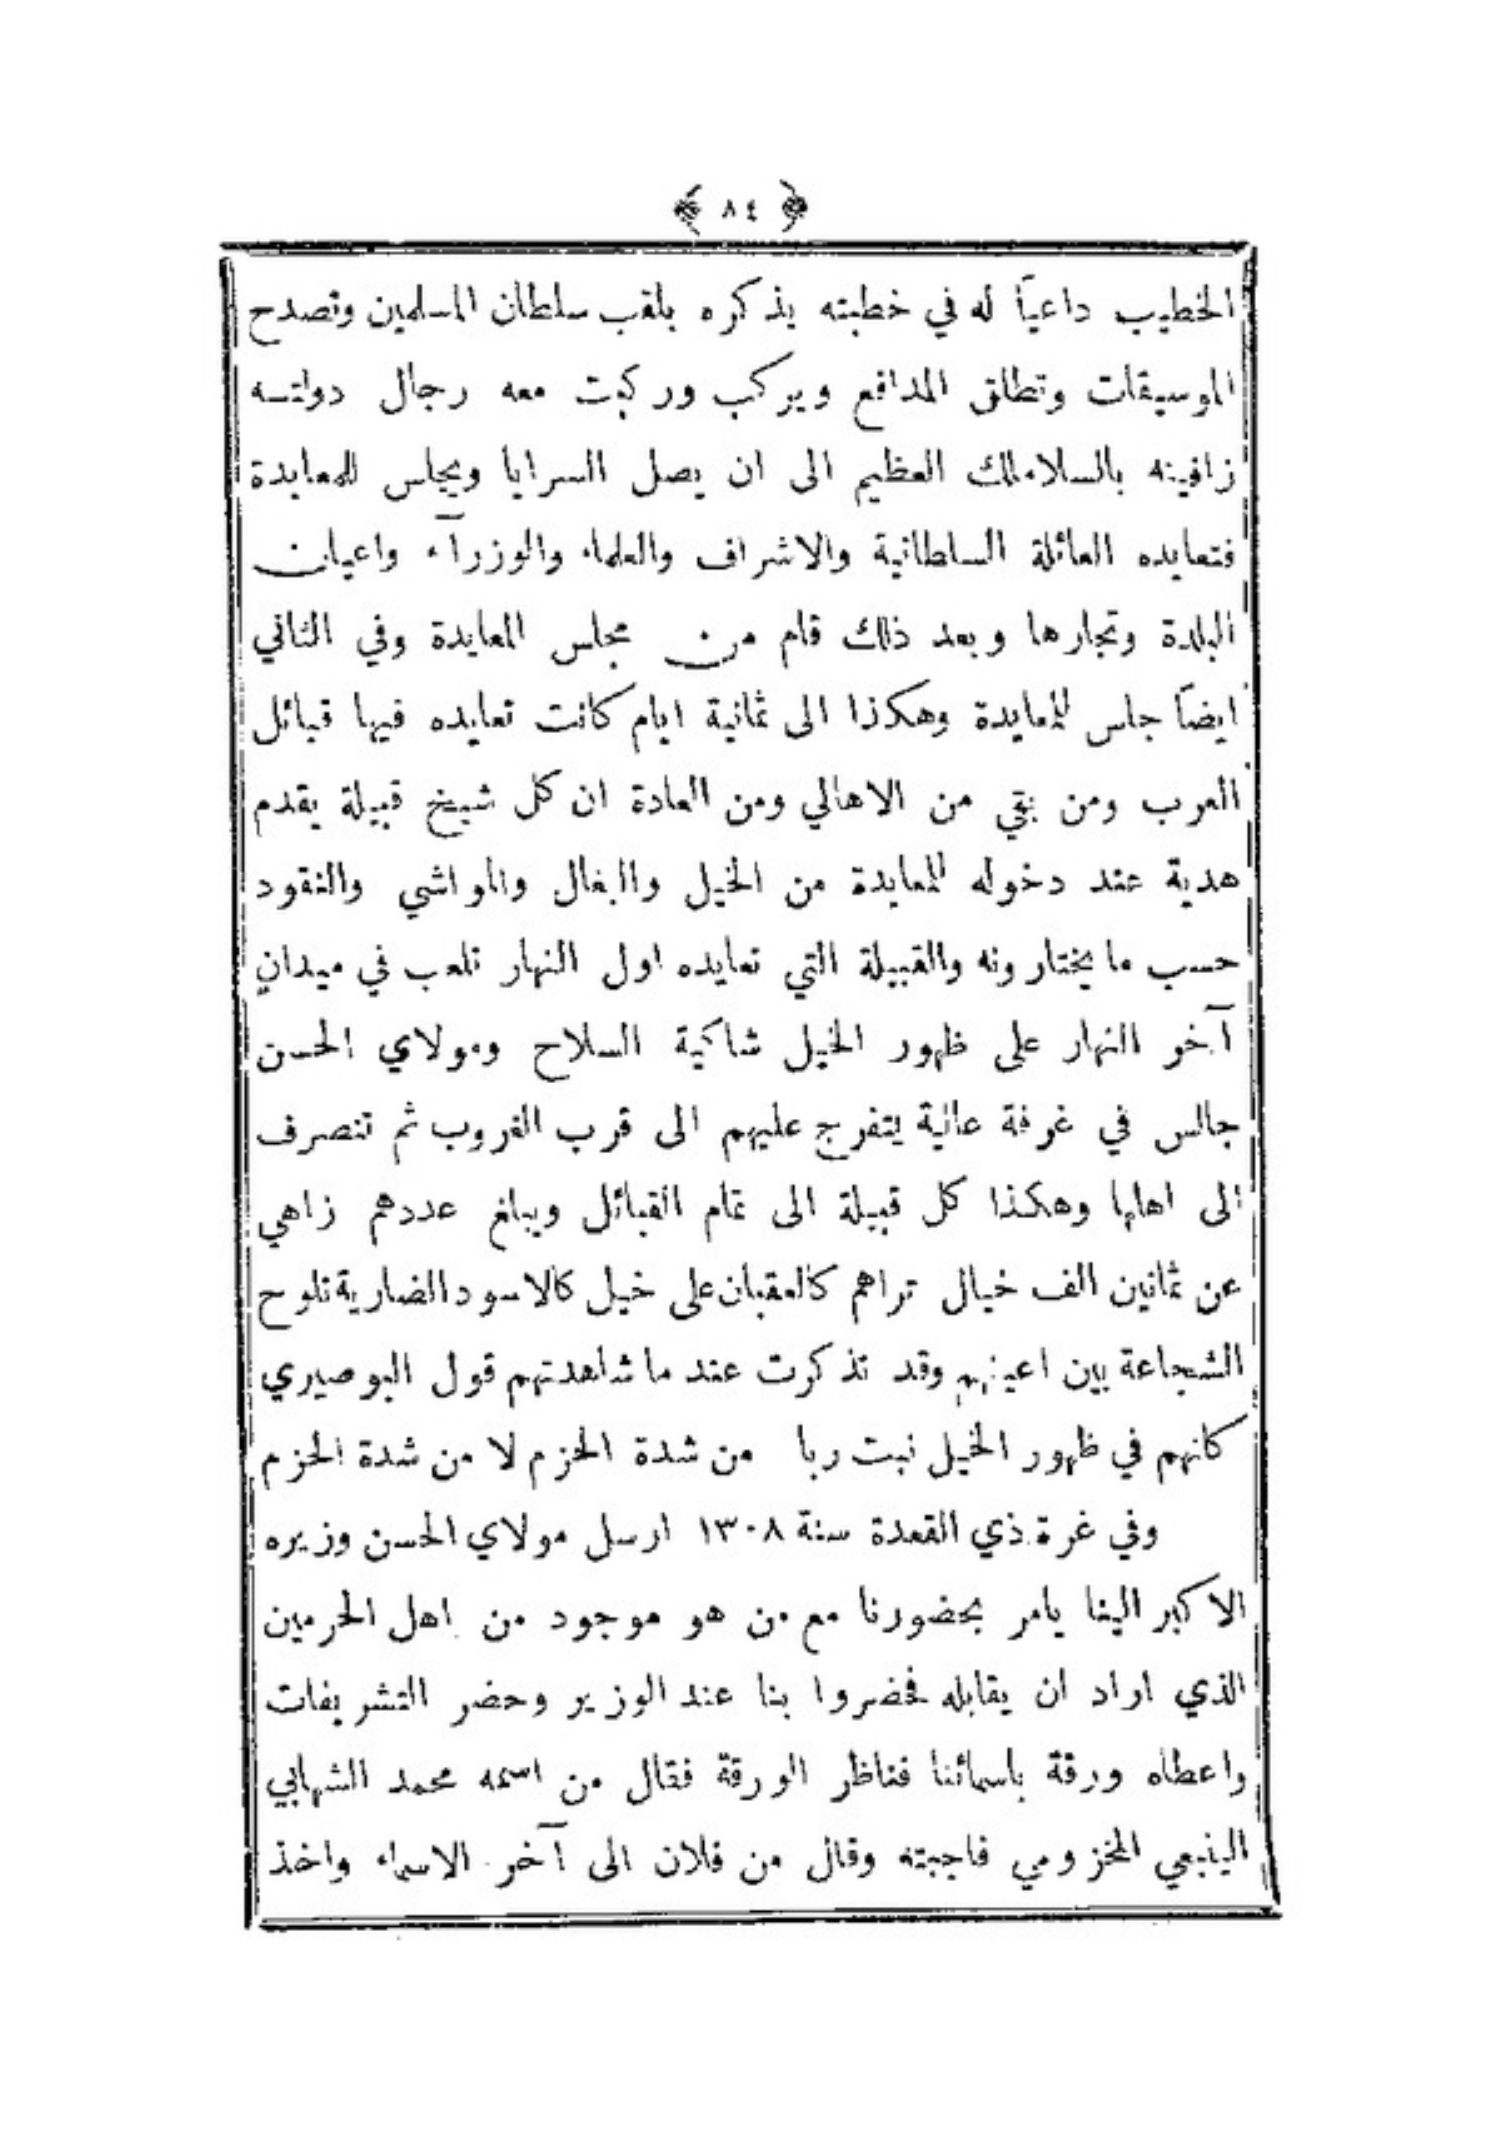 ﴿ ٨٤ ﴾
الخطيب داعيًا له في خطبته يذكره بلقب سلطان المسلمين وتصدح
الموسيقات وتطلق المدافع ويركب وركبت معه رجال دولته
زافينه بالسلاملك العظيم الى ان يصل السرايا ويجلس للمعايدة
فتعايده العائلة السلطانية والاشراف والعلماء والوزرآء واعيان
البلدة وتجارها وبعد ذلك قام من مجلس المعايدة وفي الثاني
ايضًا جلس للمعايدة وهكذا الى ثمانية ايام كانت تعايده فيها قبائل
العرب ومن بقي من الاهالي ومن العادة ان كل شيخ قبيلة يقدم
هدية عند دخوله للمعايدة من الخيل والبغال والمواشي والنقود
حسب ما يختارونه والقبيلة التي تعايده اول النهار تلعب في ميدانٍ
آخر النهار على ظهور الخيل شاكية السلاح ومولاي الحسن
جالس في غرفة عالية يتفرج عليهم الى قرب الغروب ثم تنصرف
الى اهلها وهكذا كل قبيلة الى تمام القبائل ويبلغ عددهم زاهي
عن ثمانين الف خيال تراهم كالعقبان على خيل كالاسود الضارية تلوح
الشجاعة بين اعينهم وقد تذكرت عند ما شاهدتهم قول البوصيري
كانهم في ظهور الخيل نبت ربا من شدة الحزم لا من شدة الحزم
وفي غرة ذي القعدة سنة ١٣٠٨ ارسل مولاي الحسن وزيره
الاكبر الينا يامر بحضورنا مع من هو موجود من اهل الحرمين
الذي اراد ان يقابله فحضروا بنا عند الوزير وحضر التشريفات
واعطاه ورقة باسمائنا فناظر الورقة فقال من اسمه محمد الشهابي
الينبعي المخزومي فاجبته وقال من فلان الى آخر الاسماء واخذ